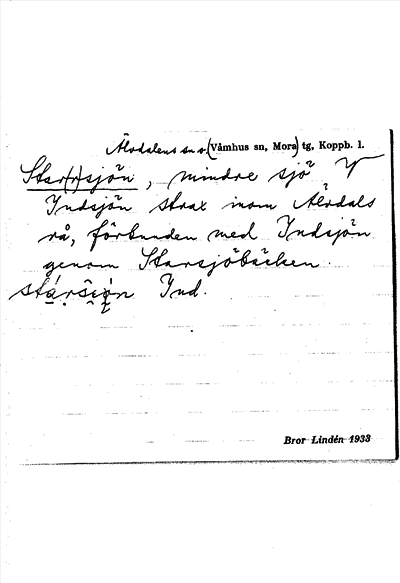 Älvdalens sn o. (Våmhus sn, Mora) tg, Koppb. l.
Star(r)sjön, mindre sjö V
Indsjön strax inom Älvdals
rå, förbunden med Indsjön
genom Starsjöbäcken.
Ind.
Bror Lindén 1933